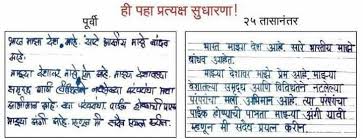 ही पहा प्रत्यक्ष सुधारणा!
पूर्वी
२५ तासानंतर
भारत माझा देश आहे. सारे भारतीय माझे बांधव
आहे.
माझ्या देशावर माझे प्रेम आहे. माझ्या देशातल्या
समृद्ध आणि विविधतेने नटलेल्या परंपरांचा मला
अभिमान आहे. त्या परंपरांचा पाईक होण्याची पात्रता
माझ्या अंगी म्हणून मी सदैव प्रयत्न करीन.
भारत माझ्या देश आहे. सारे भारतीय माझे
बांधव आहे.
माझ्या देशावर माझे प्रेम आहे. माझ्या
देशातल्या समृध्द आणि विविधतेने नटलेल्या
परंपरांचा मला अभिमान आहे. त्या परंपरांचा
पाईक होण्याची पात्रता माझ्या अंगी यावी
म्हणून मी सदैव प्रयत्न करीन.